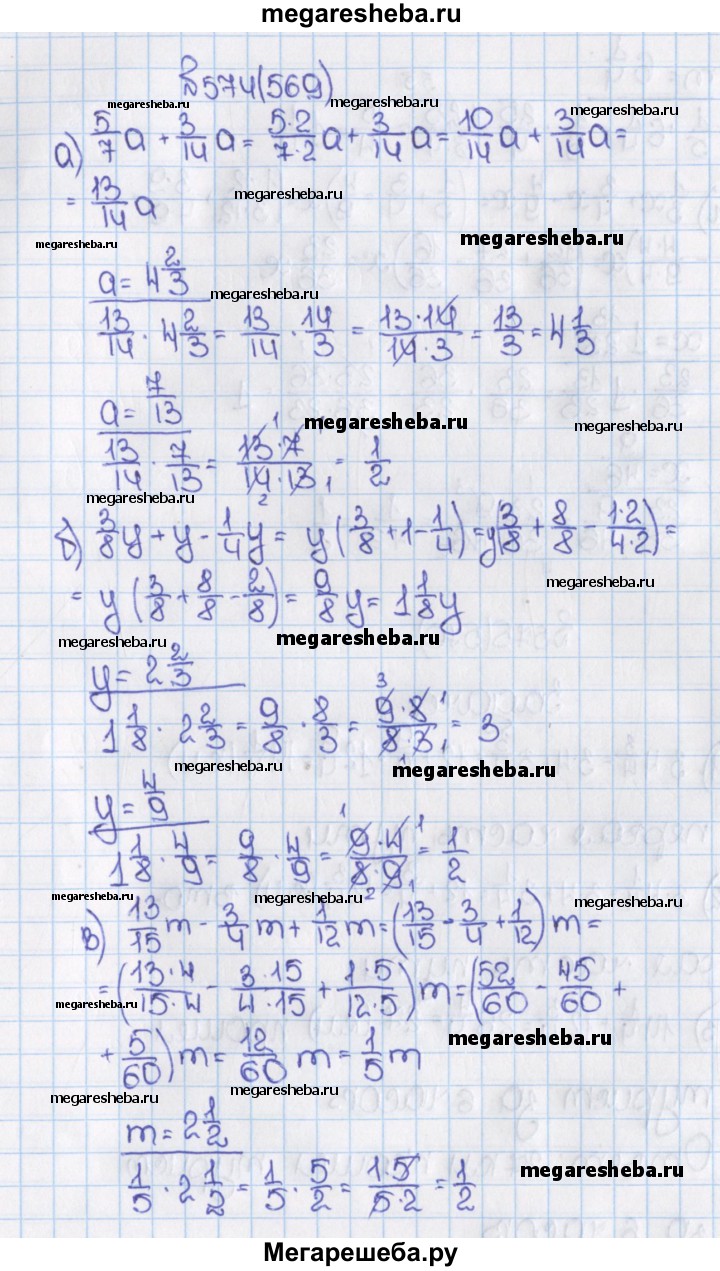 megaresheba.ru
№574(569)
megaresheba.ru megaresheba.ru megaresheba.ru
а) 5/7 a + 3/14 a = 5·2/7·2 a + 3/14 a = 10/14 a + 3/14 a =
= 13/14 a
megaresheba.ru megaresheba.ru
megaresheba.ru
megaresheba.ru
a = 4 2/3
megaresheba.ru
13/14 · 4 2/3 = 13/14 · 14/3 = 13·14/14·3 = 13/3 = 4 1/3
a = 7/13
megaresheba.ru megaresheba.ru
13/14 · 7/13 = 1 13·7 1/2 14·13 1 = 1/2
megaresheba.ru
б) 3/8 y + y - 1/4 y = y (3/8 + 1 - 1/4) = y(3/8 + 8/8 - 1·2/4·2) =
megaresheba.ru
= y (3/8 + 8/8 - 2/8) = 9/8 y = 1 1/8 y
megaresheba.ru megaresheba.ru megaresheba.ru
y = 2 2/3
1 1/8 · 2 2/3 = 9/8 · 8/3 = 3 9·8 1/1 8·3 1 = 3
megaresheba.ru megaresheba.ru
y = 4/9
megaresheba.ru
1 1/8 · 4/9 = 9/8 · 4/9 = 1 9·4 1/2 8·9 1 = 1/2
megaresheba.ru megaresheba.ru megaresheba.ru
в) 13/15 m - 3/4 m + 1/12 m = (13/15 - 3/4 + 1/12) m =
= (13·4/15·4 - 3·15/4·15 + 1·5/12·5) m = (52/60 - 45/60 +
megaresheba.ru
megaresheba.ru
+ 5/60) m = 12/60 m = 1/5 m
megaresheba.ru megaresheba.ru
m = 2 1/2
megaresheba.ru
1/5 · 2 1/2 = 1/5 · 5/2 = 1·5/5·2 = 1/2
megaresheba.ru
Мегарешеба.ру